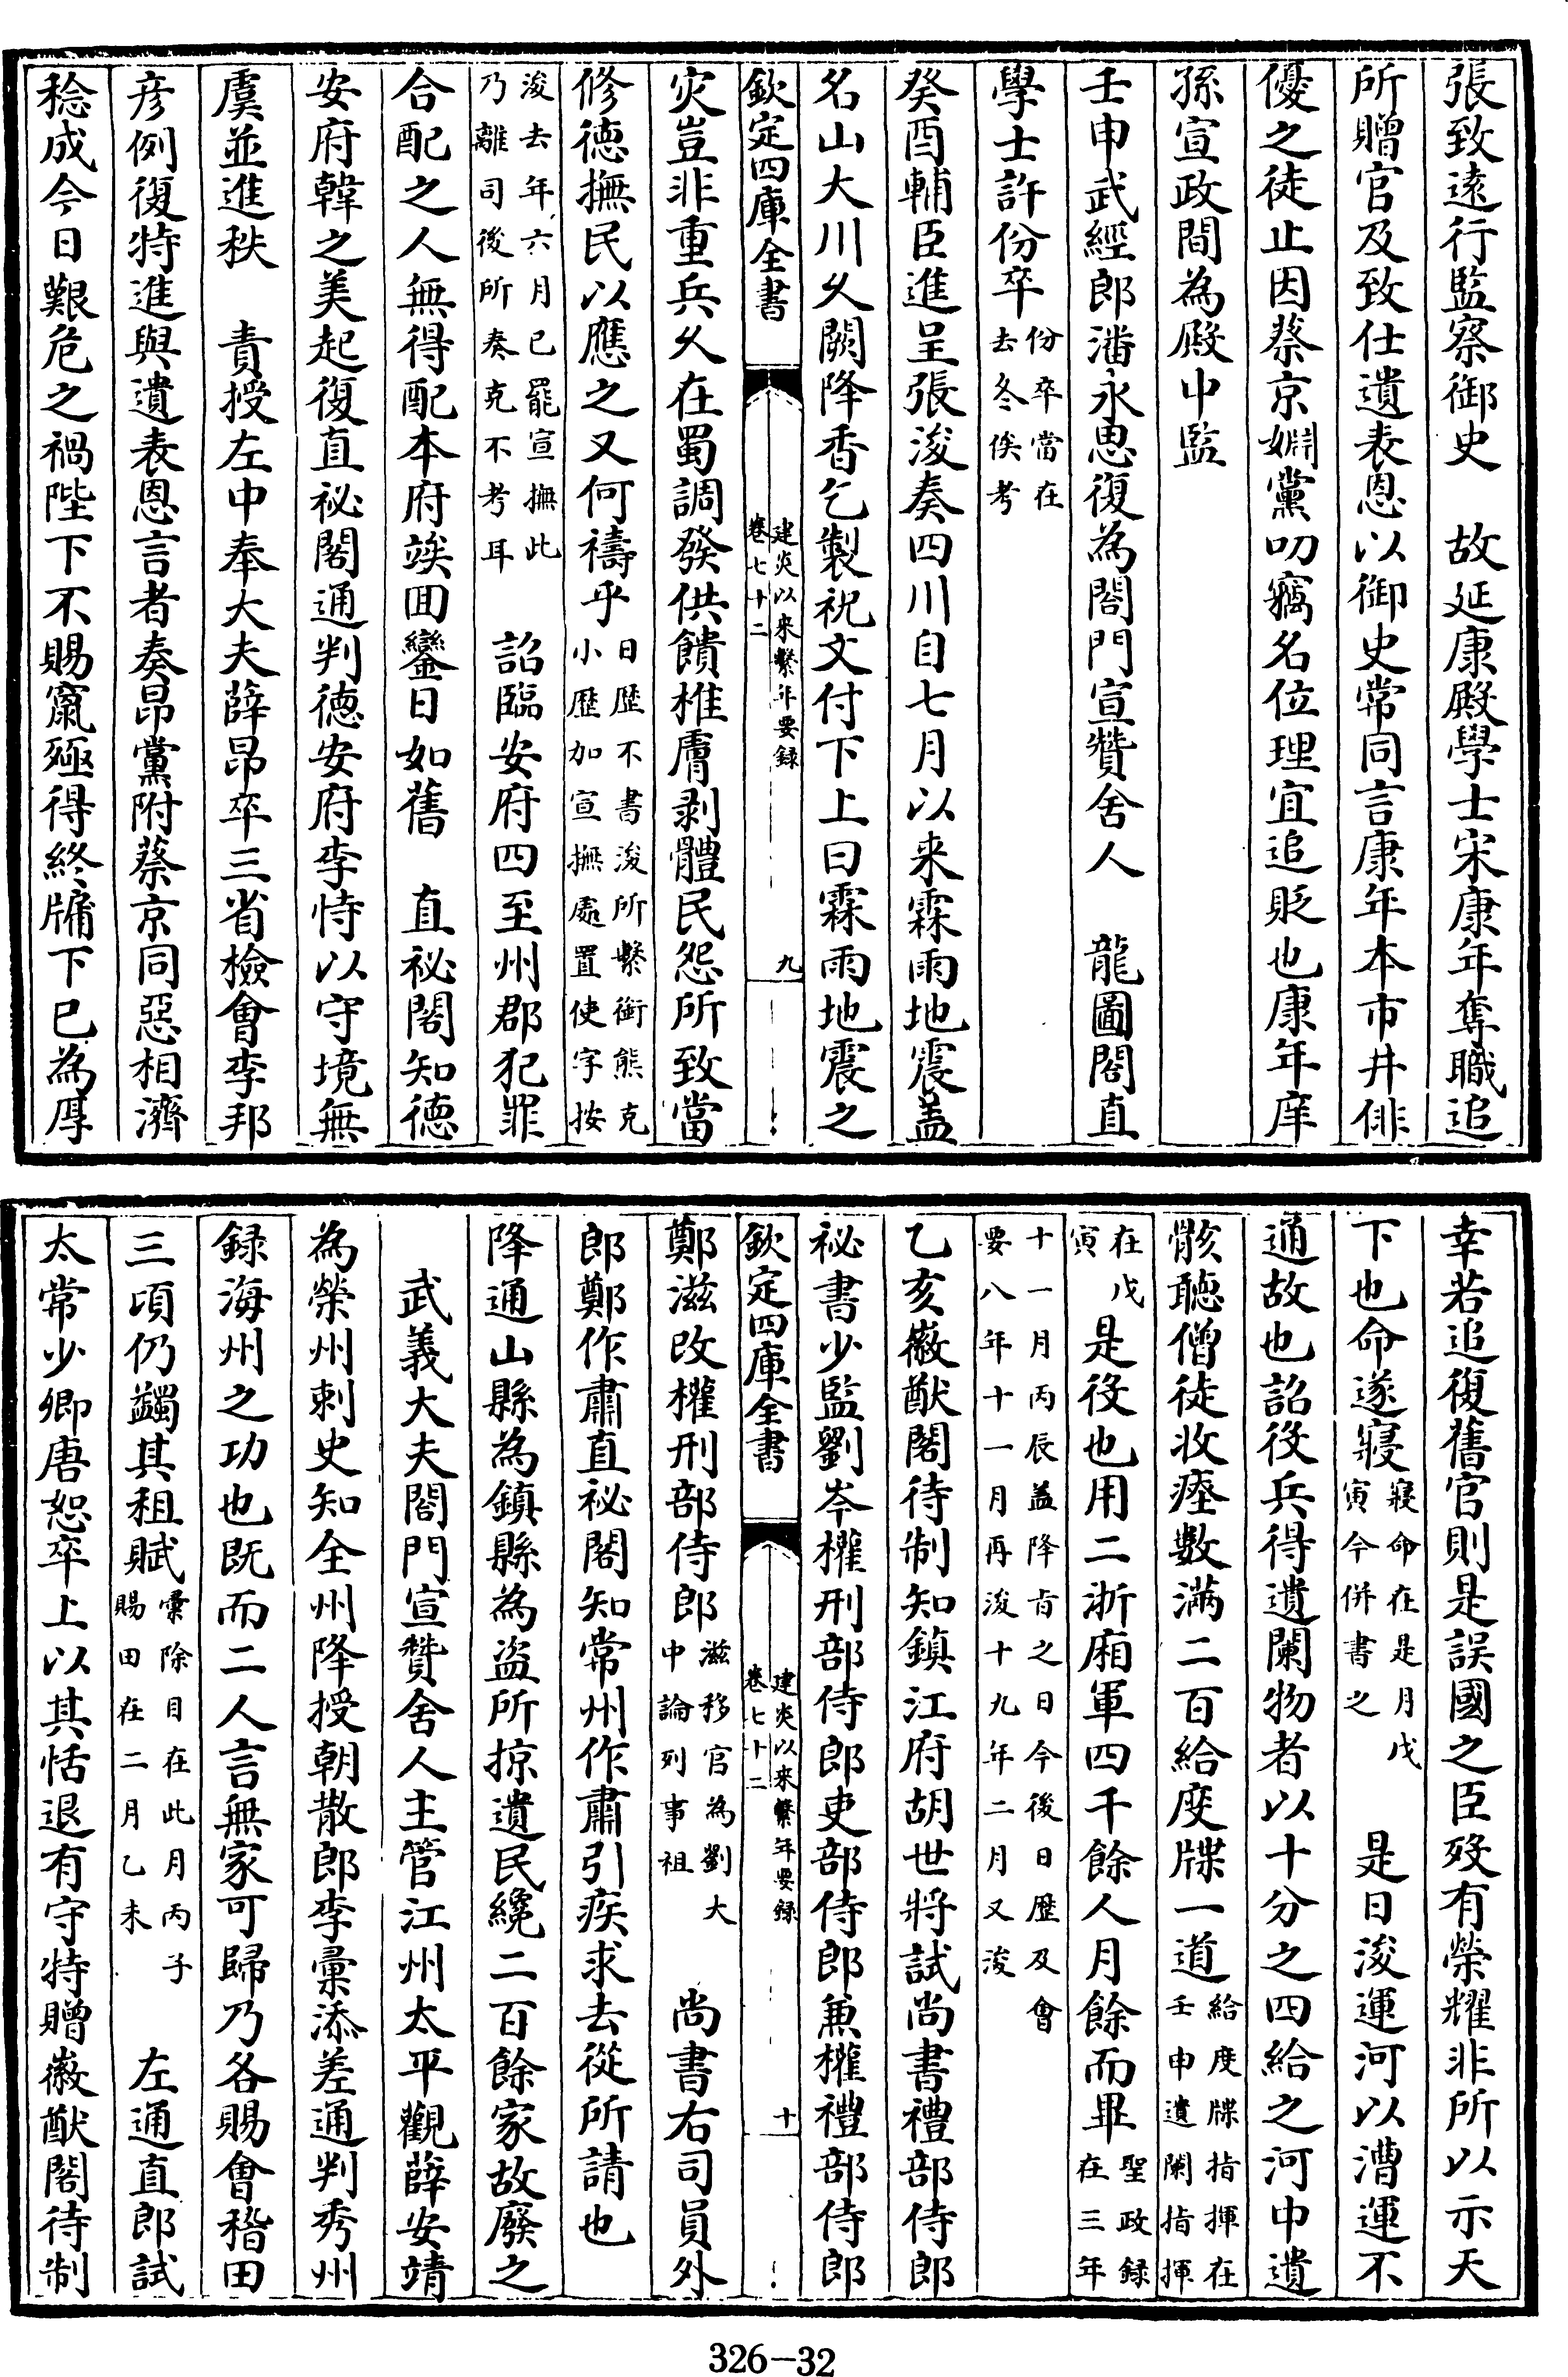 張致遠行監察御史　故延康殿學士宋康年奪職追
所贈官及致仕遺表恩以御史常同言康年本市井俳
優之徒止因蔡京姻黨叨竊名位理宜追貶也康年庠
孫宣政間為殿中監
壬申武經郎潘永思復為閤門宣贊舍人　龍圖閣直
學士許份卒份卒當在去冬俟考
癸酉輔臣進呈張浚奏四川自七月以来霖雨地震盖
名山大川乆闕降香乞製祝文付下上曰霖雨地震之
欽定四庫全書　建炎以来繫年要録　卷七十二　九
灾豈非重兵乆在蜀調發供饋椎膚剥體民怨所致當
修德撫民以應之又何禱乎日歴不書浚所繫銜熊克小歴加宣撫處置使字按
浚去年六月已罷宣撫此乃離司後所奏克不考耳　詔臨安府四至州郡犯罪
合配之人無得配本府竢回鑾日如舊　直祕閣知德
安府韓之美起復直祕閣通判德安府李恃以守境無
虞並進秩　責授左中奉大夫薛昂卒三省檢會李邦
彦例復特進與遺表恩言者奏昂黨附蔡京同惡相濟
稔成今日艱危之禍陛下不賜竄殛得終牖下已為厚
幸若追復舊官則是誤國之臣殁有榮耀非所以示天
下也命遂寢寢命在是月戊寅今併書之　是日浚運河以漕運不
通故也詔役兵得遺闌物者以十分之四給之河中遺
骸聽僧徒收瘞數滿二百給度牒一道給度牒指揮在壬申遺闌指揮
在戊寅是役也用二浙廂軍四千餘人月餘而畢聖政録在三年
十一月丙辰盖降㫖之日今後日歴及會要八年十一月再浚十九年二月又浚
乙亥徽猷閣待制知鎮江府胡世將試尚書禮部侍郎
祕書少監劉岑權刑部侍郎吏部侍郎兼權禮部侍郎
欽定四庫全書　建炎以来繫年要録　卷七十二　十
鄭滋改權刑部侍郎滋移官為劉大中論列事祖　尚書右司員外
郎鄭作肅直祕閣知常州作肅引疾求去從所請也
降通山縣為鎮縣為盗所掠遺民纔二百餘家故廢之
武義大夫閤門宣贊舍人主管江州太平觀薛安靖
為榮州刺史知全州降授朝散郎李彚添差通判秀州
録海州之功也既而二人言無家可歸乃各賜會稽田
三頃仍蠲其租賦彚除目在此月丙子賜田在二月乙未　左通直郎試
太常少卿唐恕卒上以其恬退有守特贈徽猷閣待制
326-32